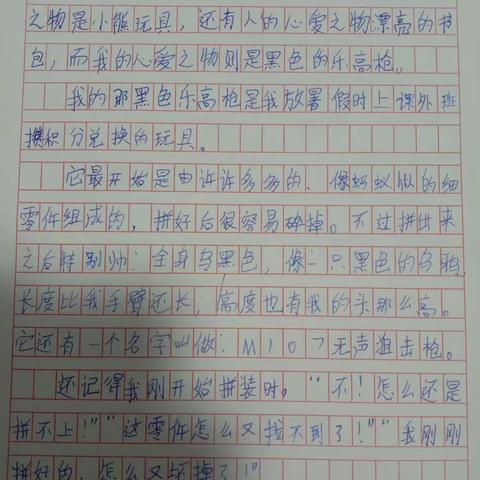 之物是小熊玩具，还有人的心爱之物漂高的书
包，而我的心爱之物则是黑色的乐高枪。
我的那黑色乐高枪是我放暑假时上课外班
攒积分兑换的玩具。
它最开始是由许许多多的、像蚂蚁似的细
零件组成的，拼好后很容易碎掉。不过拼出来
之后特别帅：全身乌黑色，像一只黑色的乌鸦，
长度比我手臂还长，高度也有我的头那么高。
它还有一个名字叫做：M107无声狙击枪。
还记得我刚开始拼装时，“不！怎么还是
拼不上！”“这零件怎么又找不到了！”“我刚刚
拼好的，怎么又坏掉了！”